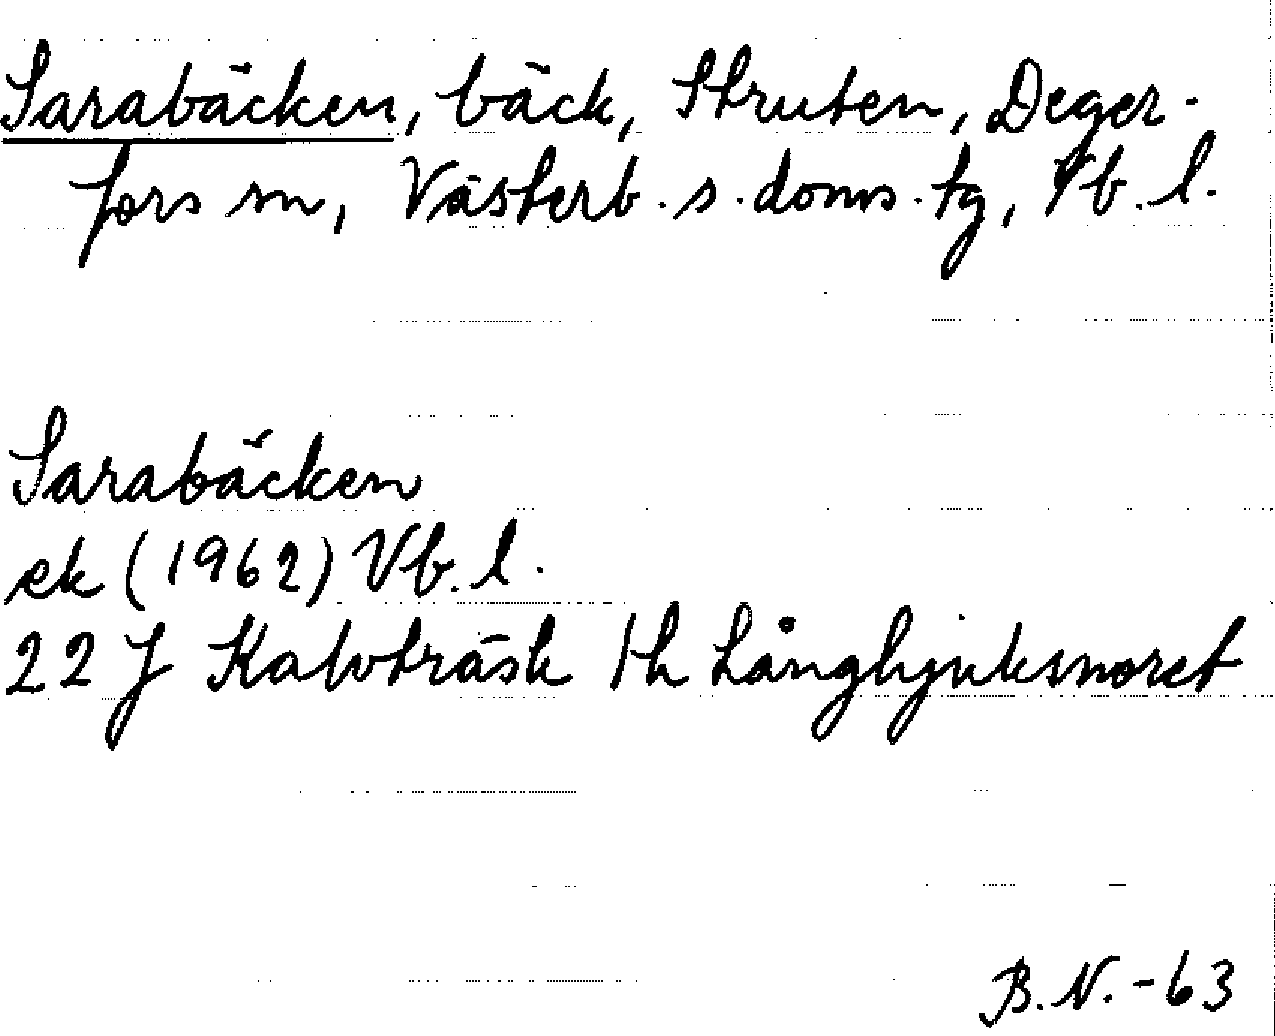 Sarabäcken, bäck, Struten, Deger-
fors sn, Västerb. s. doms. tg, Vb. l.
Sarabäcken
ek (1962) Vb. l.
22 J Kalvträsk 1h Långhjuksnoret
B.N. -63